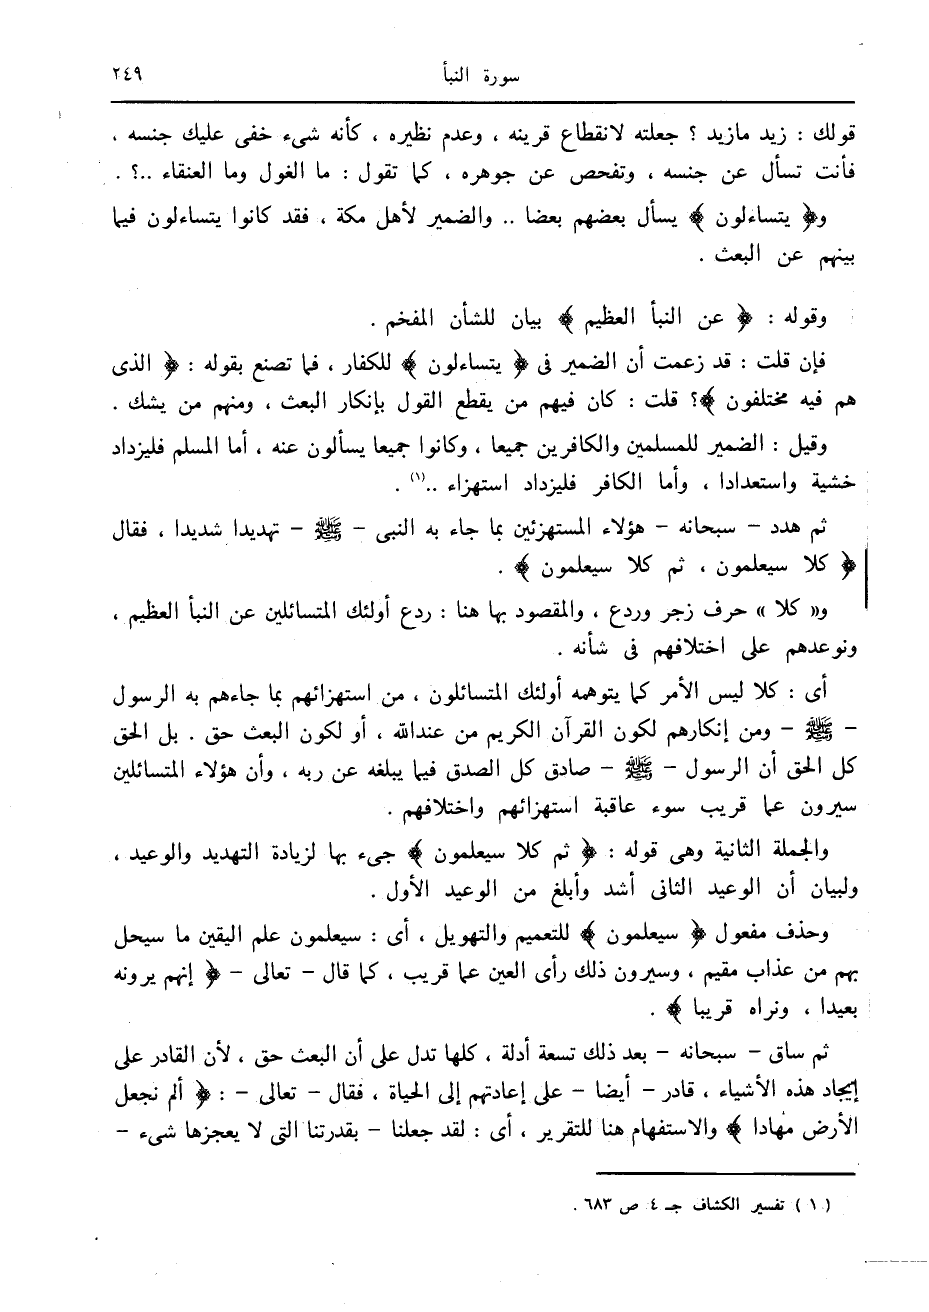 سورة النبأ ٢٤٩
قولك : زيد مازيد ؟ جعلته لانقطاع قرينه ، وعدم نظيره ، كأنه شىء خفى عليك جنسه ،
فأنت تسأل عن جنسه ، وتفحص عن جوهره ، كما تقول : ما الغول وما العنقاء ..؟ .
و﴿ يتساءلون ﴾ يسأل بعضهم بعضا .. والضمير لأهل مكة ، فقد كانوا يتساءلون فيما
بينهم عن البعث .
وقوله : ﴿ عن النبأ العظيم ﴾ بيان للشأن المفخم .
فإن قلت : قد زعمت أن الضمير فى ﴿ يتساءلون ﴾ للكفار ، فما تصنع بقوله : ﴿ الذى
هم فيه مختلفون ﴾؟ قلت : كان فيهم من يقطع القول بإنكار البعث ، ومنهم من يشك .
وقيل : الضمير للمسلمين والكافرين جميعا ، وكانوا جميعا يسألون عنه ، أما المسلم فليزداد
خشية واستعدادا ، وأما الكافر فليزداد استهزاء ..(١) .
ثم هدد – سبحانه – هؤلاء المستهزئين بما جاء به النبى – ﷺ – تهديدا شديدا ، فقال
﴿ كلا سيعلمون ، ثم كلا سيعلمون ﴾ .
و« كلا » حرف زجر وردع ، والمقصود بها هنا : ردع أولئك المتسائلين عن النبأ العظيم ،
وتوعدهم على اختلافهم فى شأنه .
أى : كلا ليس الأمر كما يتوهمه أولئك المتسائلون ، من استهزائهم بما جاءهم به الرسول
– ﷺ – ومن إنكارهم لكون القرآن الكريم من عندالله ، أو لكون البعث حق . بل الحق
كل الحق أن الرسول – ﷺ – صادق كل الصدق فيما يبلغه عن ربه ، وأن هؤلاء المتسائلين
سيرون عما قريب سوء عاقبة استهزائهم واختلافهم .
والجملة الثانية وهى قوله : ﴿ ثم كلا سيعلمون ﴾ جىء بها لزيادة التهديد والوعيد ،
ولبيان أن الوعيد الثانى أشد وأبلغ من الوعيد الأول .
وحذف مفعول ﴿ سيعلمون ﴾ للتعميم والتهويل ، أى : سيعلمون علم اليقين ما سيحل
بهم من عذاب مقيم ، وسيرون ذلك رأى العين عما قريب ، كما قال – تعالى – ﴿ إنهم يرونه
بعيدا ، ونراه قريبا ﴾ .
ثم ساق – سبحانه – بعد ذلك تسعة أدلة ، كلها تدل على أن البعث حق ، لأن القادر على
إيجاد هذه الأشياء ، قادر – أيضا – على إعادتهم إلى الحياة ، فقال – تعالى – : ﴿ ألم نجعل
الأرض مهادا ﴾ والاستفهام هنا للتقرير ، أى : لقد جعلنا – بقدرتنا التى لا يعجزها شىء –
( ١ ) تفسير الكشاف جـ ٤ ص ٦٨٣ .